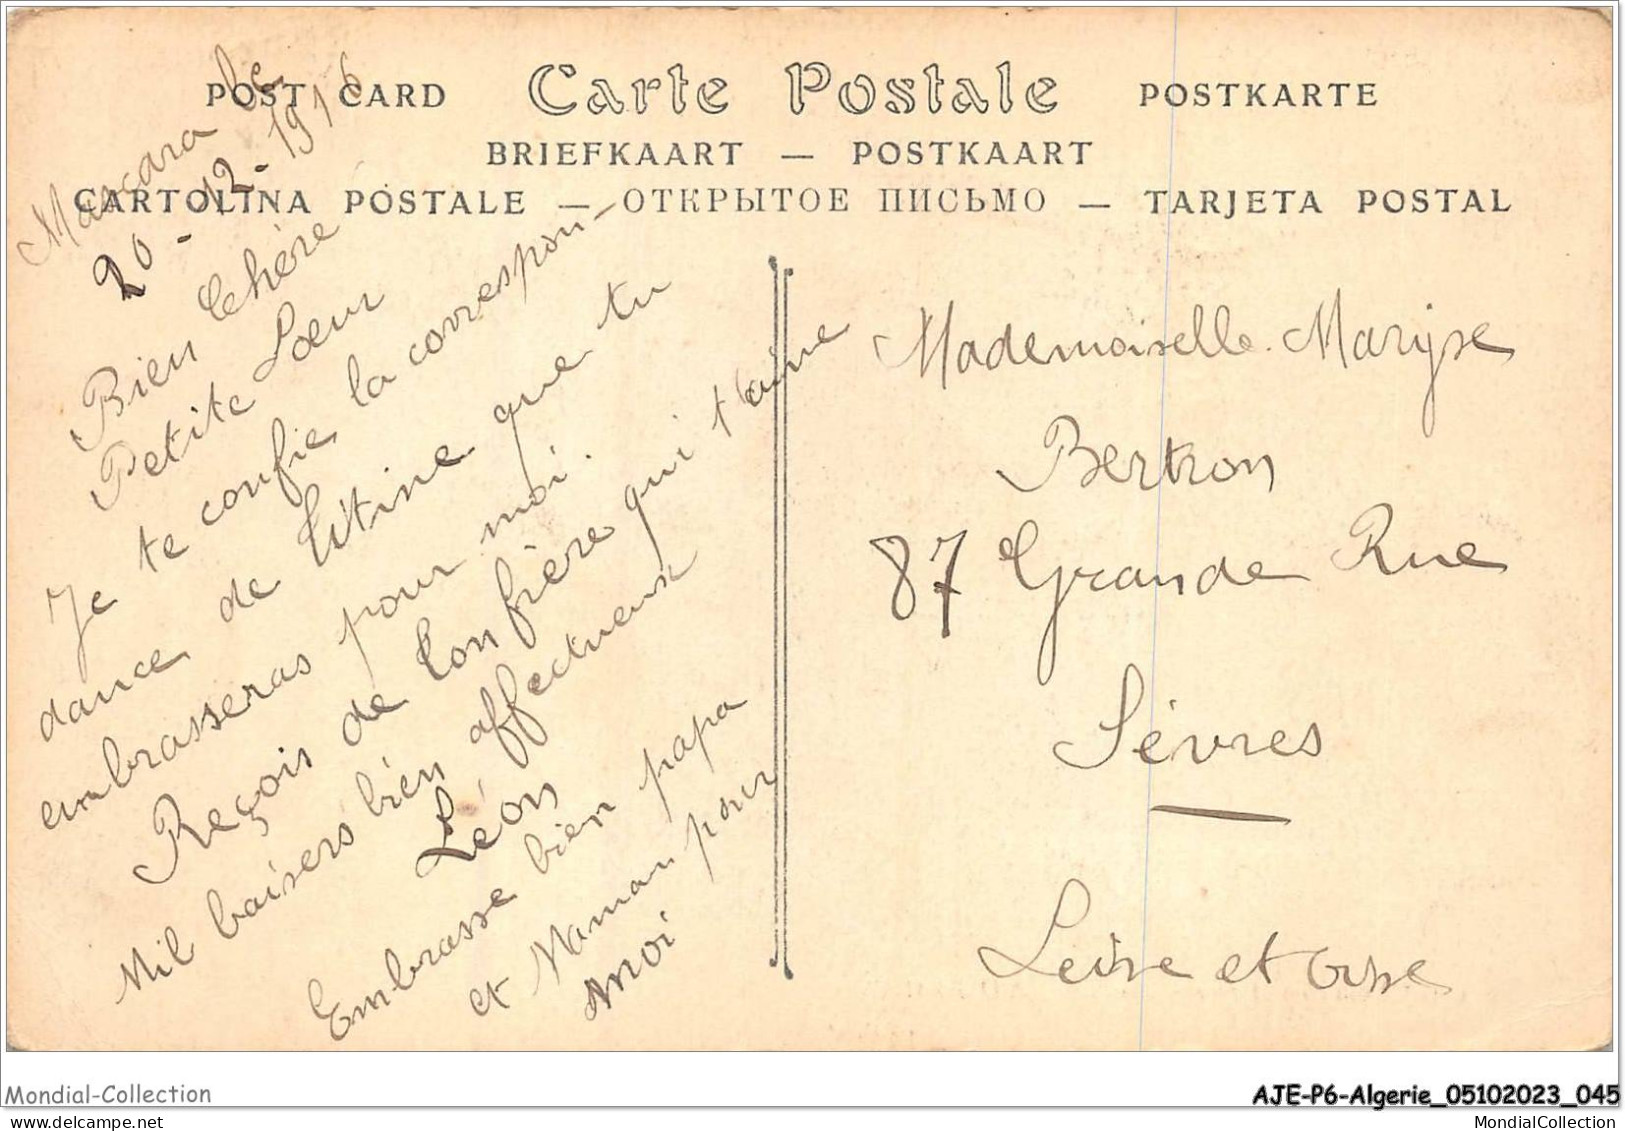 POST CARD Carte Postale POSTKARTE
BRIEFKAART — POSTKAART
CARTOLINA POSTALE — ОТКРЫТОЕ ПИСЬМО — TARJETA POSTAL
Mascara le
20-12-1916
Bien Chère
Petite Sœur
Je te confie la correspon-
dance de Titine que tu
embrasseras pour moi.
Reçois de ton frère qui t'aime
Mil baisers bien affectueux
Léon
Embrasse bien papa
et Maman pour
moi
Mademoiselle Maryse
Bertron
87 Grande Rue
Sèvres
Seine et Oise
Mondial-Collection
AJE-P6-Algerie_05102023_045
MondialCollection